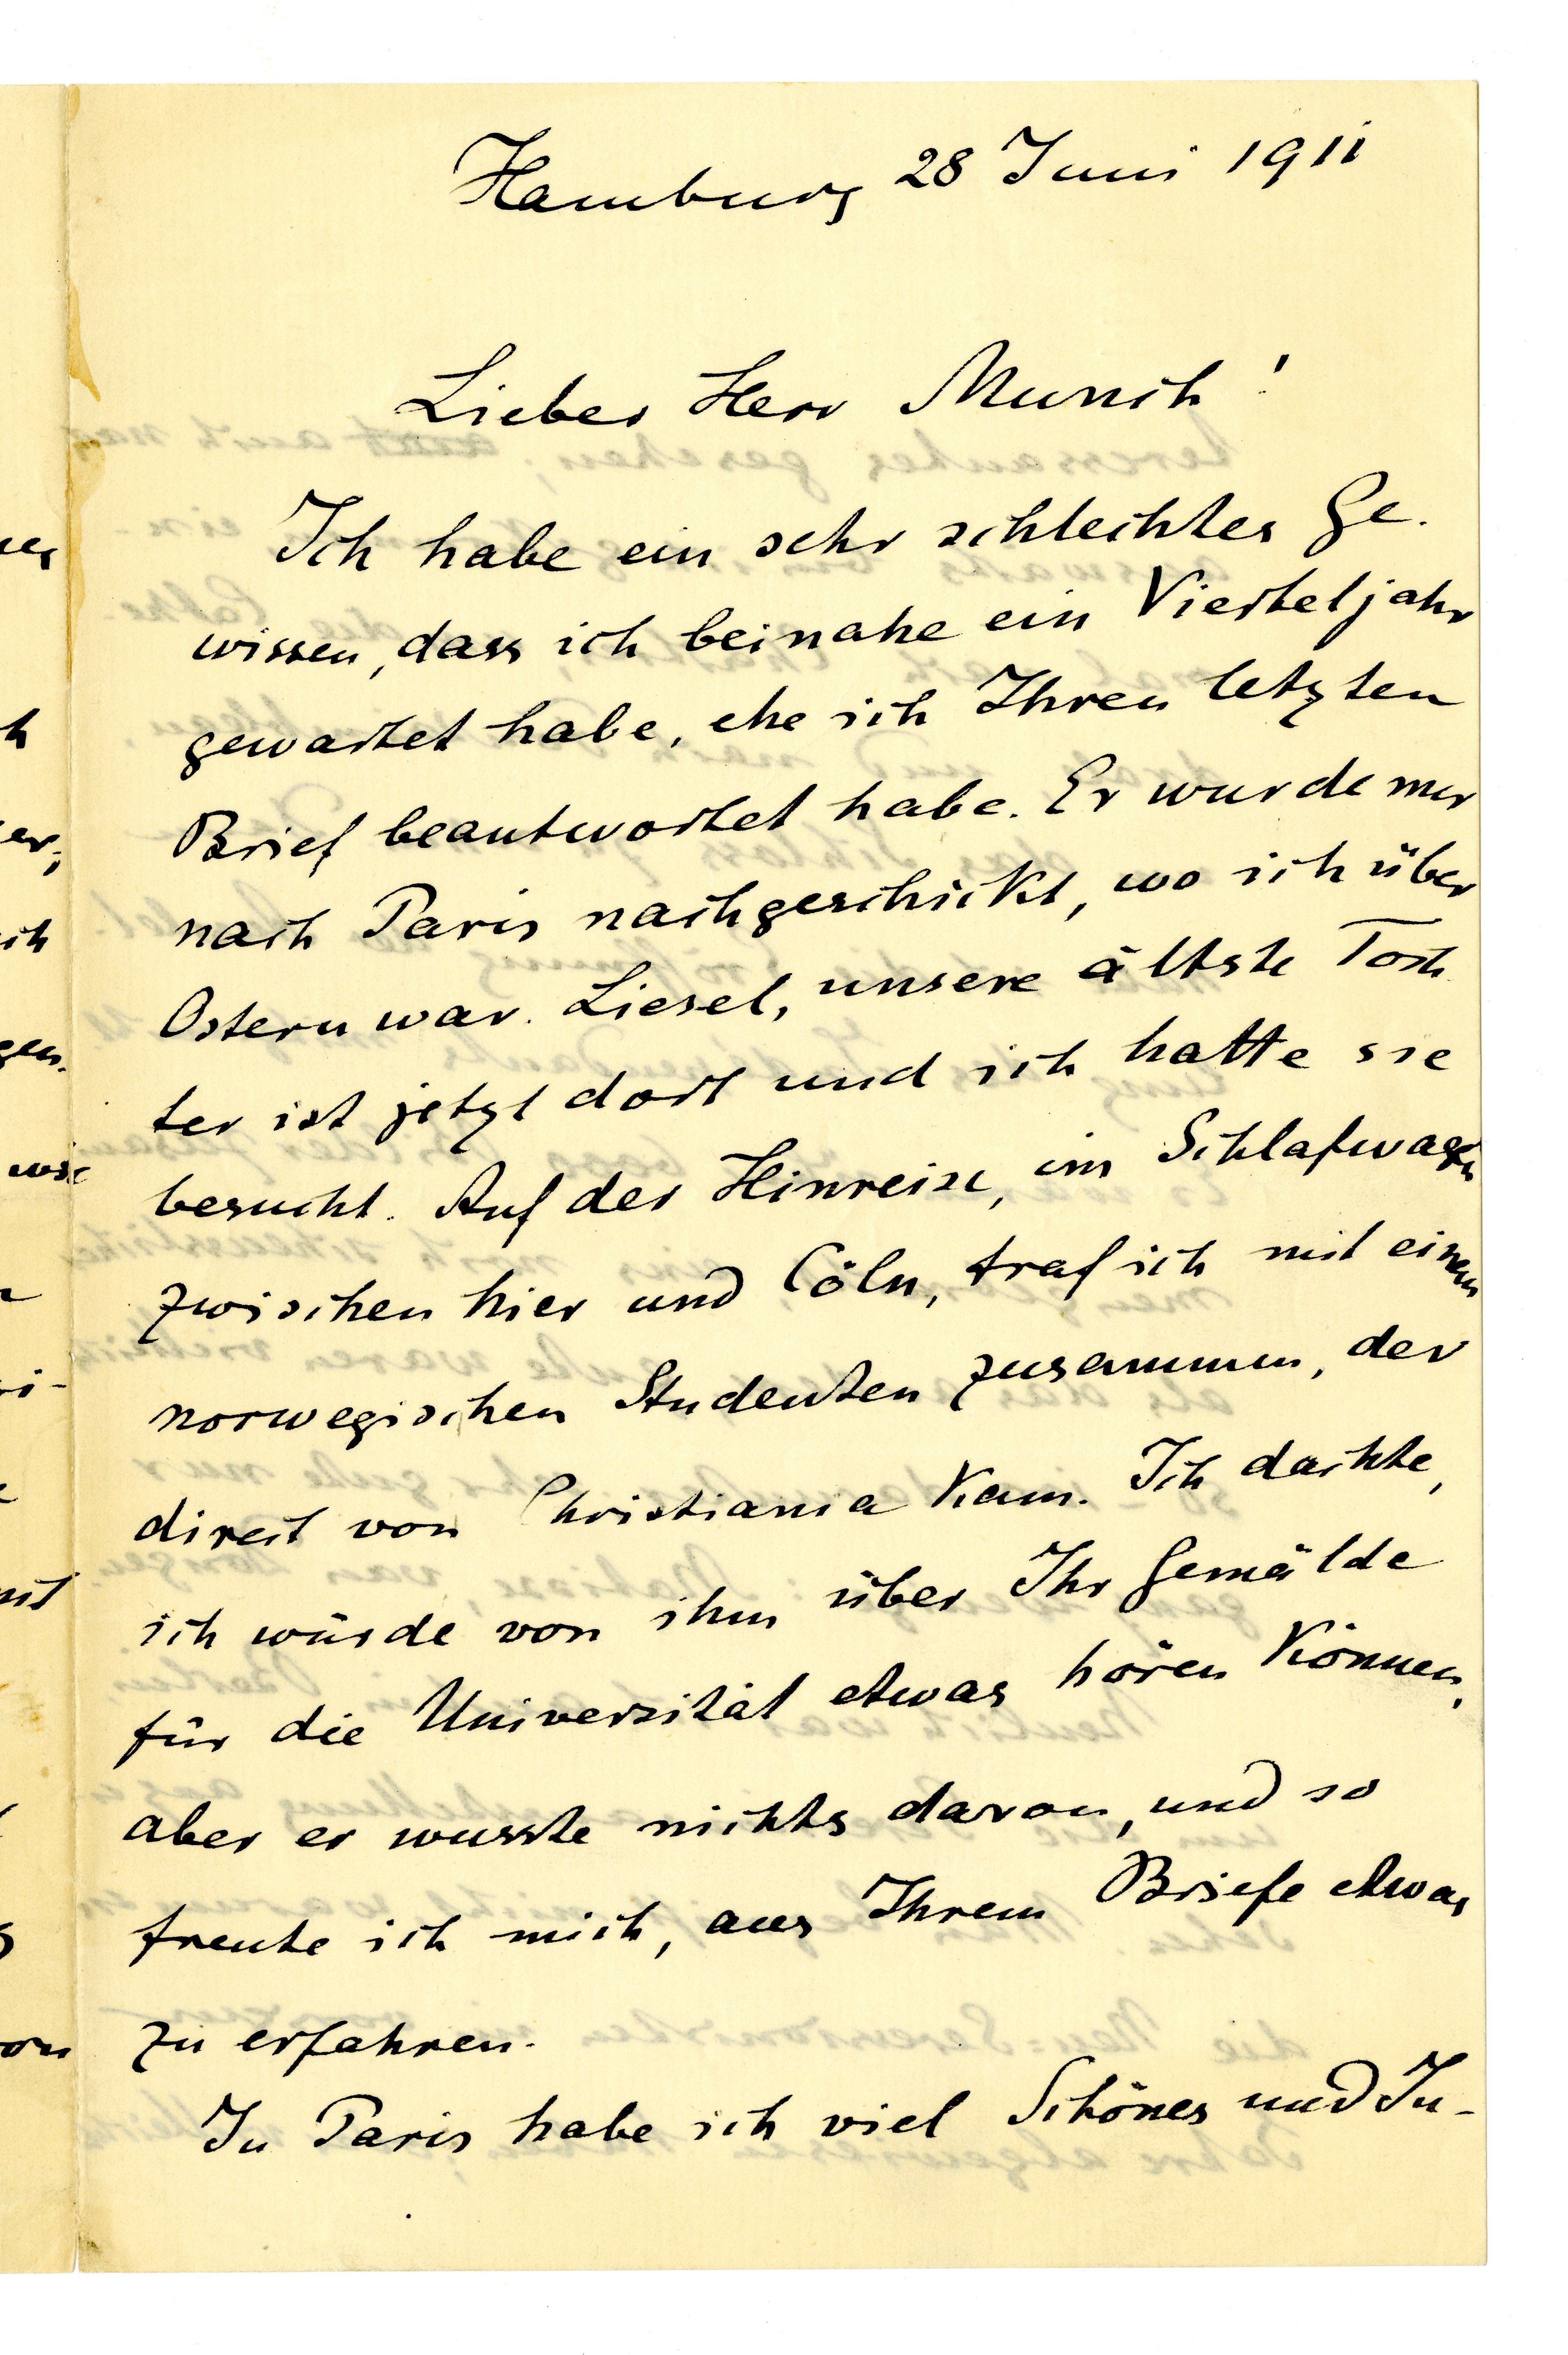 Hamburg 28 Juni 1911
Lieber Herr Munch!
Ich habe ein sehr schlechtes Ge-
wissen, dass ich beinahe ein Vierteljahr
gewartet habe, ehe ich Ihren letzten
Brief beantwortet habe. Er wurde mir
nach Paris nachgeschickt, wo ich über
Ostern war. Liesel, unsere älteste Toch-
ter ist jetzt dort und ich hatte sie
besucht. Auf der Hinreise, im Schlafwagen
zwischen hier und Cöln, traf ich mit einem
norwegischen Studenten zusammen, der
direct von Christiania kam. Ich dachte,
ich würde von ihm über Ihr Gemälde
für die Universität etwas hören können,
aber er wusste nichts davon, und so
freute ich mich, aus Ihrem Briefe etwas
zu erfahren.
In Paris habe ich viel Schönes und In-